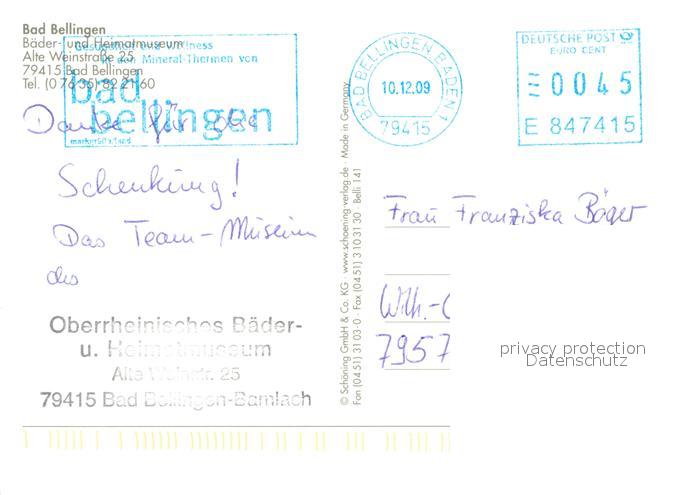 Bad Bellingen
Bäder- und Heimatmuseum
Alte Weinstraße 25
79415 Bad Bellingen
Tel. (0 76 35) 82 21 60
Gesundheit und Wellness
in den Mineral-Thermen von
bad
bellingen
markgräflerland
BAD BELLINGEN BADEN 1
10.12.09
79415
DEUTSCHE POST
EURO CENT
0045
E 847415
Danke für die
Schenkung!
Das Team-Museum
des
Oberrheinisches Bäder-
u. Heimatmuseum
Alte Weinstr. 25
79415 Bad Bellingen-Bamlach
© Schöning GmbH & Co. KG · www.schoening-verlag.de · Made in Germany
Fon (04 51) 31 03-0 · Fax (04 51) 3 10 31 30 · Belli 141
Frau Franziska Böger
Wilh.-
7957
privacy protection
Datenschutz